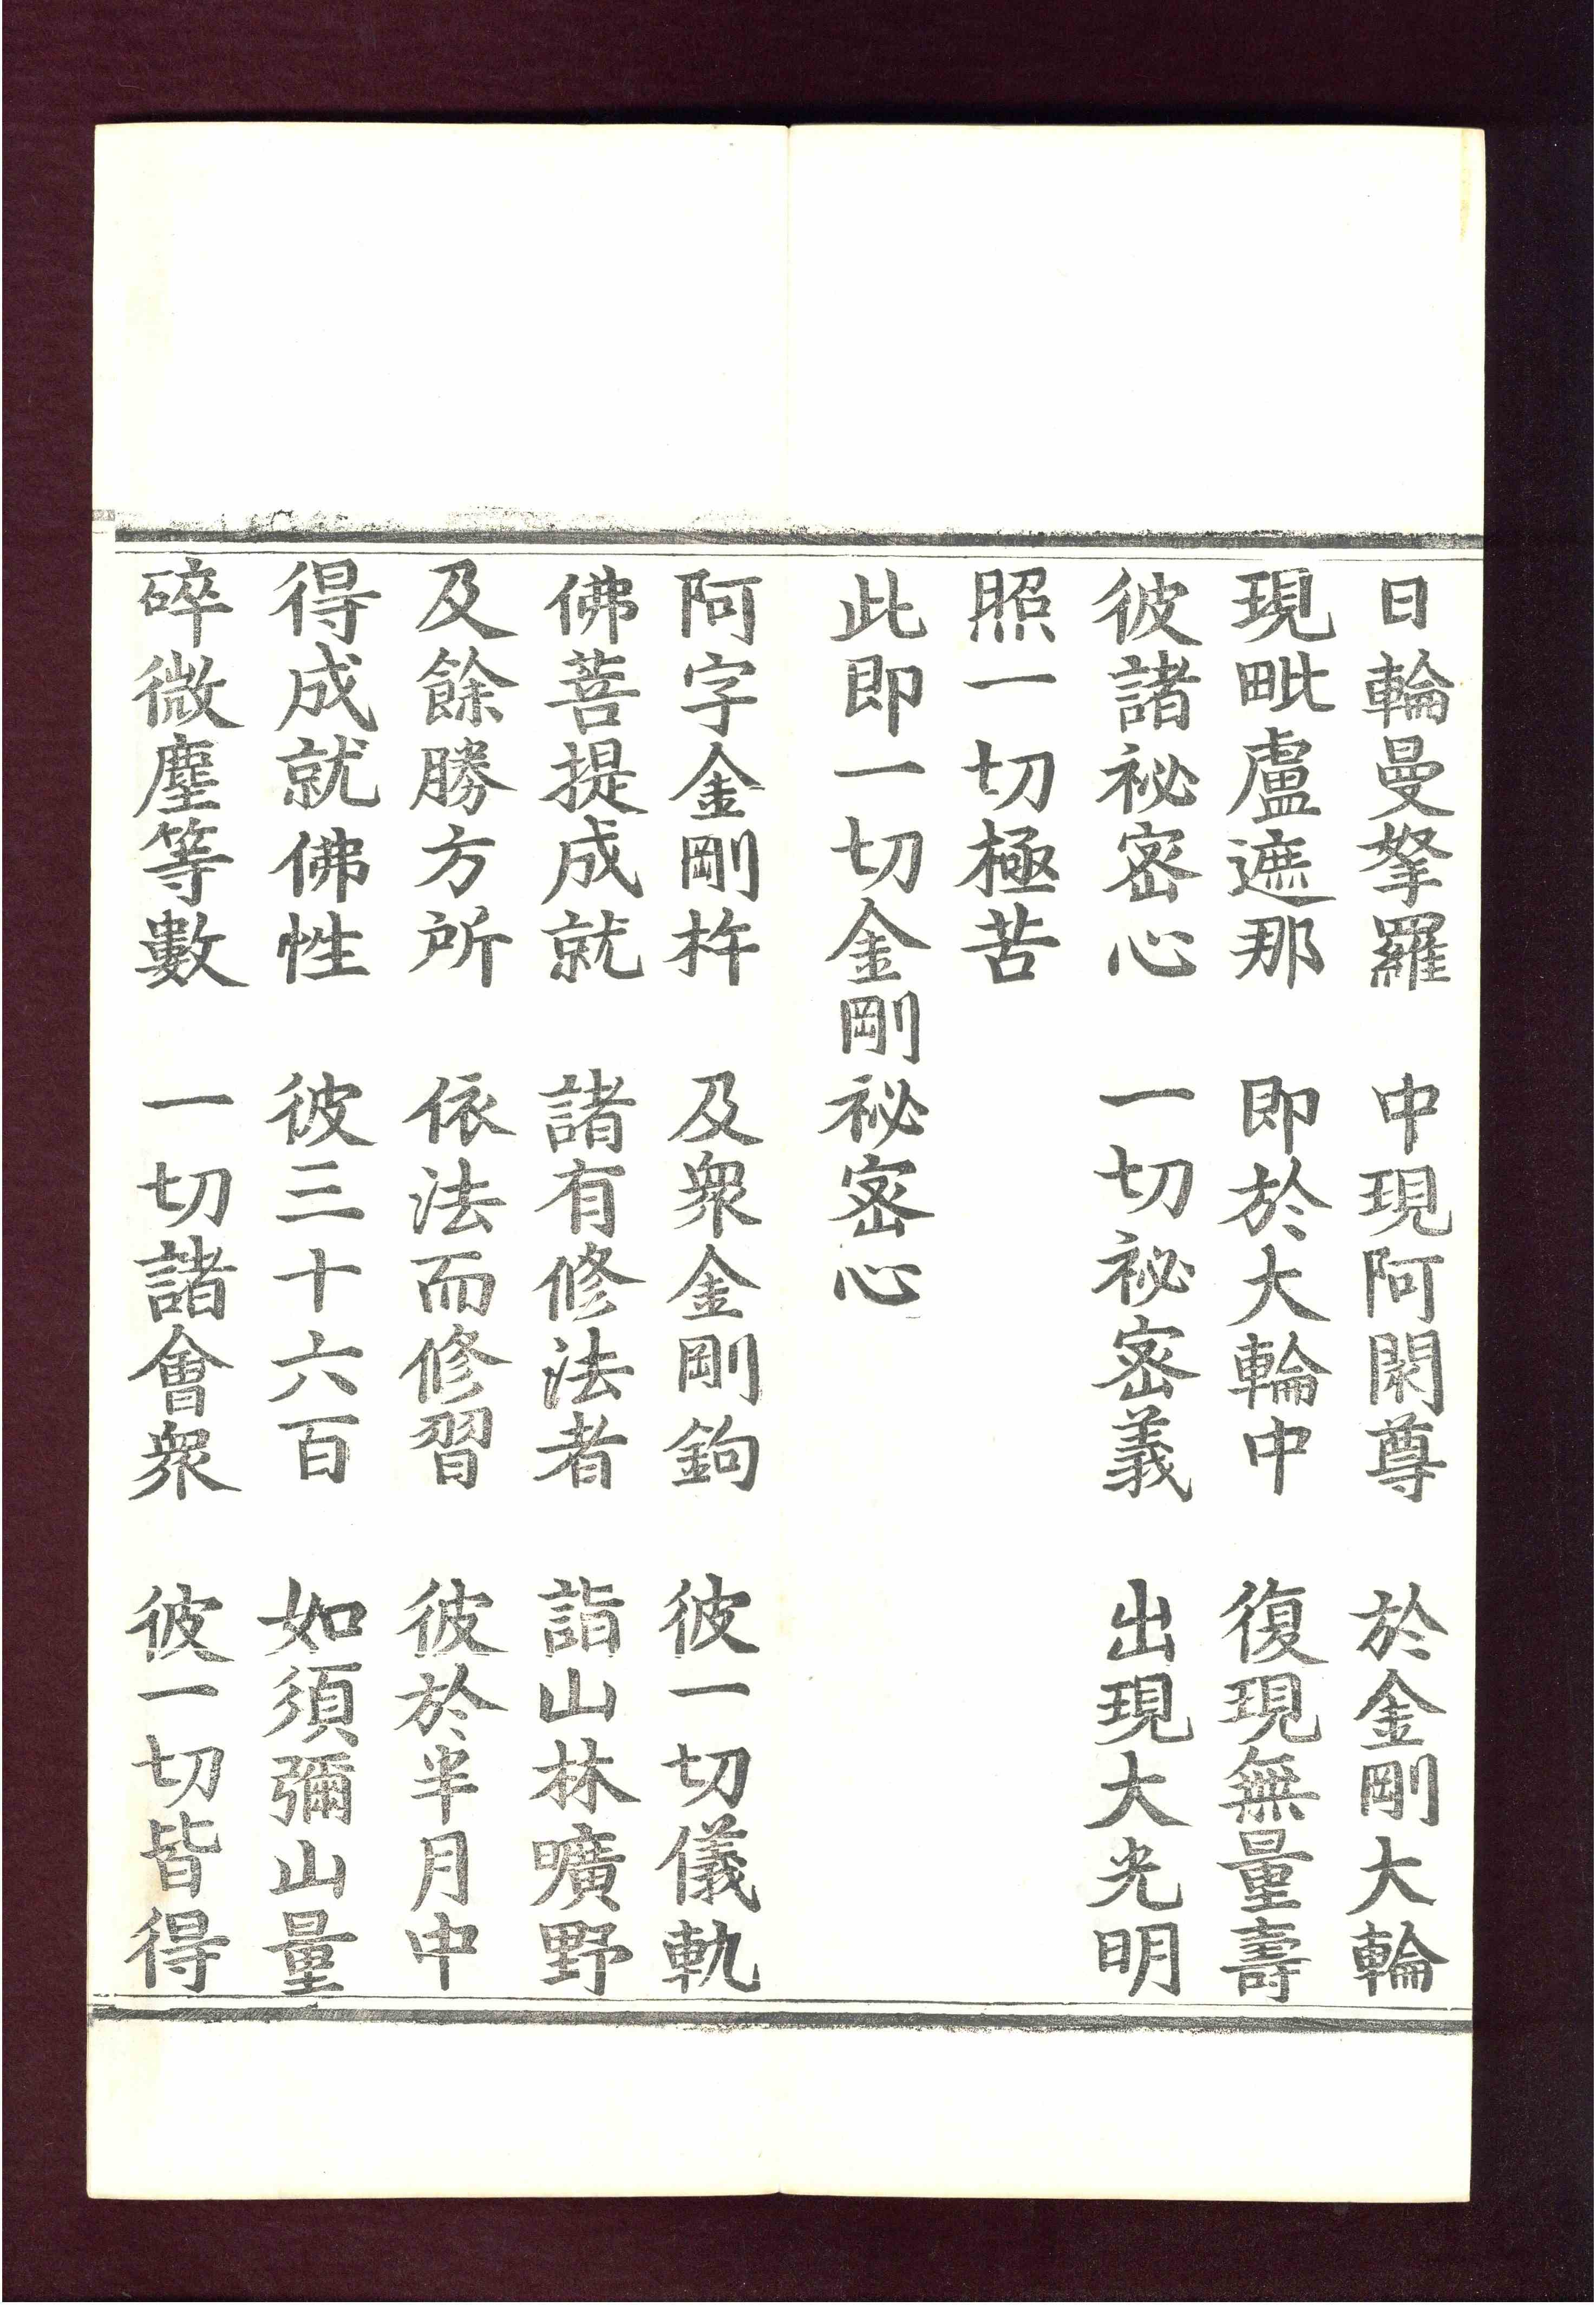 日輪曼拏羅　中現阿閦尊　於金剛大輪
現毗盧遮那　即於大輪中　復現無量壽
彼諸祕密心　一切祕密義　出現大光明
照一切極苦
此即一切金剛祕密心
阿字金剛杵　及衆金剛鉤　彼一切儀軌
佛菩提成就　諸有修法者　詣山林曠野
及餘勝方所　依法而修習　彼於半月中
得成就佛性　彼三十六百　如須彌山量
碎微塵等數　一切諸會衆　彼一切皆得